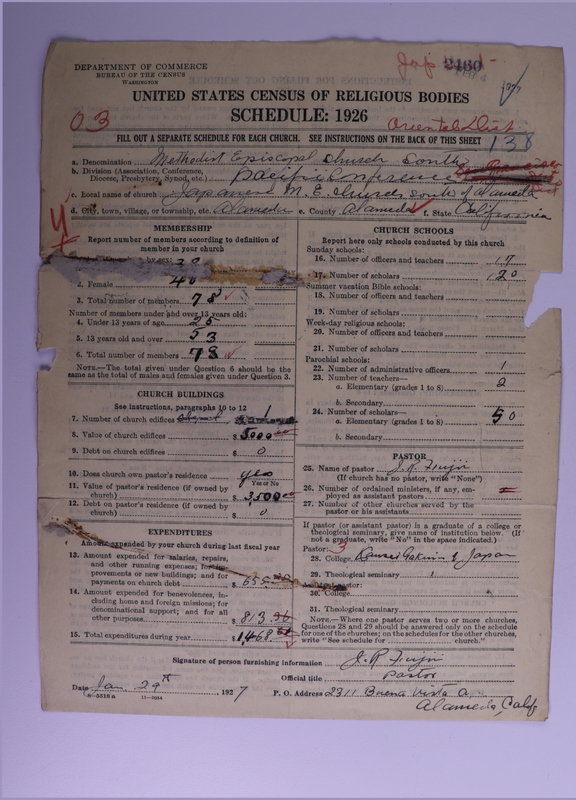 DEPARTMENT OF COMMERCE
BUREAU OF THE CENSUS
WASHINGTON
Jap
2460
UNITED STATES CENSUS OF RELIGIOUS BODIES
SCHEDULE: 1926
03
Oriental Dist
138
FILL OUT A SEPARATE SCHEDULE FOR EACH CHURCH. SEE INSTRUCTIONS ON THE BACK OF THIS SHEET
a. Denomination Methodist Episcopal Church South
b. Division (Association, Conference, Diocese, Presbytery, Synod, etc.) Pacific Conference
c. Local name of church Japanese M. E. Church, South of Alameda
d. City, town, village, or township, etc. Alameda e. County Alameda f. State California
MEMBERSHIP
Report number of members according to definition of member in your church
30
2. Female 48
3. Total number of members 78
Number of members under and over 13 years old:
4. Under 13 years of age 25
5. 13 years old and over 53
6. Total number of members 78
NOTE.—The total given under Question 6 should be the same as the total of males and females given under Question 3.
CHURCH BUILDINGS
See instructions, paragraphs 10 to 12
7. Number of church edifices 1
8. Value of church edifices $5000
9. Debt on church edifices $ 0
10. Does church own pastor's residence yes
Yes or No
11. Value of pastor's residence (if owned by church) $3,500
12. Debt on pastor's residence (if owned by church) $ 0
EXPENDITURES
Amount expended by your church during last fiscal year
13. Amount expended for salaries, repairs, and other running expenses; for improvements or new buildings; and for payments on church debt $ 655
14. Amount expended for benevolences, including home and foreign missions; for denominational support; and for all other purposes $ 813
15. Total expenditures during year $1,468
CHURCH SCHOOLS
Report here only schools conducted by this church
Sunday schools:
16. Number of officers and teachers 17
17. Number of scholars 120
Summer vacation Bible schools:
18. Number of officers and teachers
19. Number of scholars
Week-day religious schools:
20. Number of officers and teachers
21. Number of scholars
Parochial schools:
22. Number of administrative officers 1
23. Number of teachers—
a. Elementary (grades 1 to 8) 2
b. Secondary
24. Number of scholars—
a. Elementary (grades 1 to 8) 50
b. Secondary
PASTOR
25. Name of pastor J. R. Fujii
(If church has no pastor, write "None")
26. Number of ordained ministers, if any, employed as assistant pastors
27. Number of other churches served by the pastor or his assistants
If pastor (or assistant pastor) is a graduate of a college or theological seminary, give name of institution below. (If not a graduate, write "No" in the space indicated.)
Pastor: 3
28. College Kansei Gakuin of Japan
29. Theological seminary
30. College
31. Theological seminary
NOTE.—Where one pastor serves two or more churches, Questions 28 and 29 should be answered only on the schedule for one of the churches; on the schedules for the other churches, write "See schedule for church."
Signature of person furnishing information J. R. Fujii
Official title pastor
Date Jan. 29th, 1927
P. O. Address 2311 Buena Vista
Alameda, Calif
8-5518a
11-9034